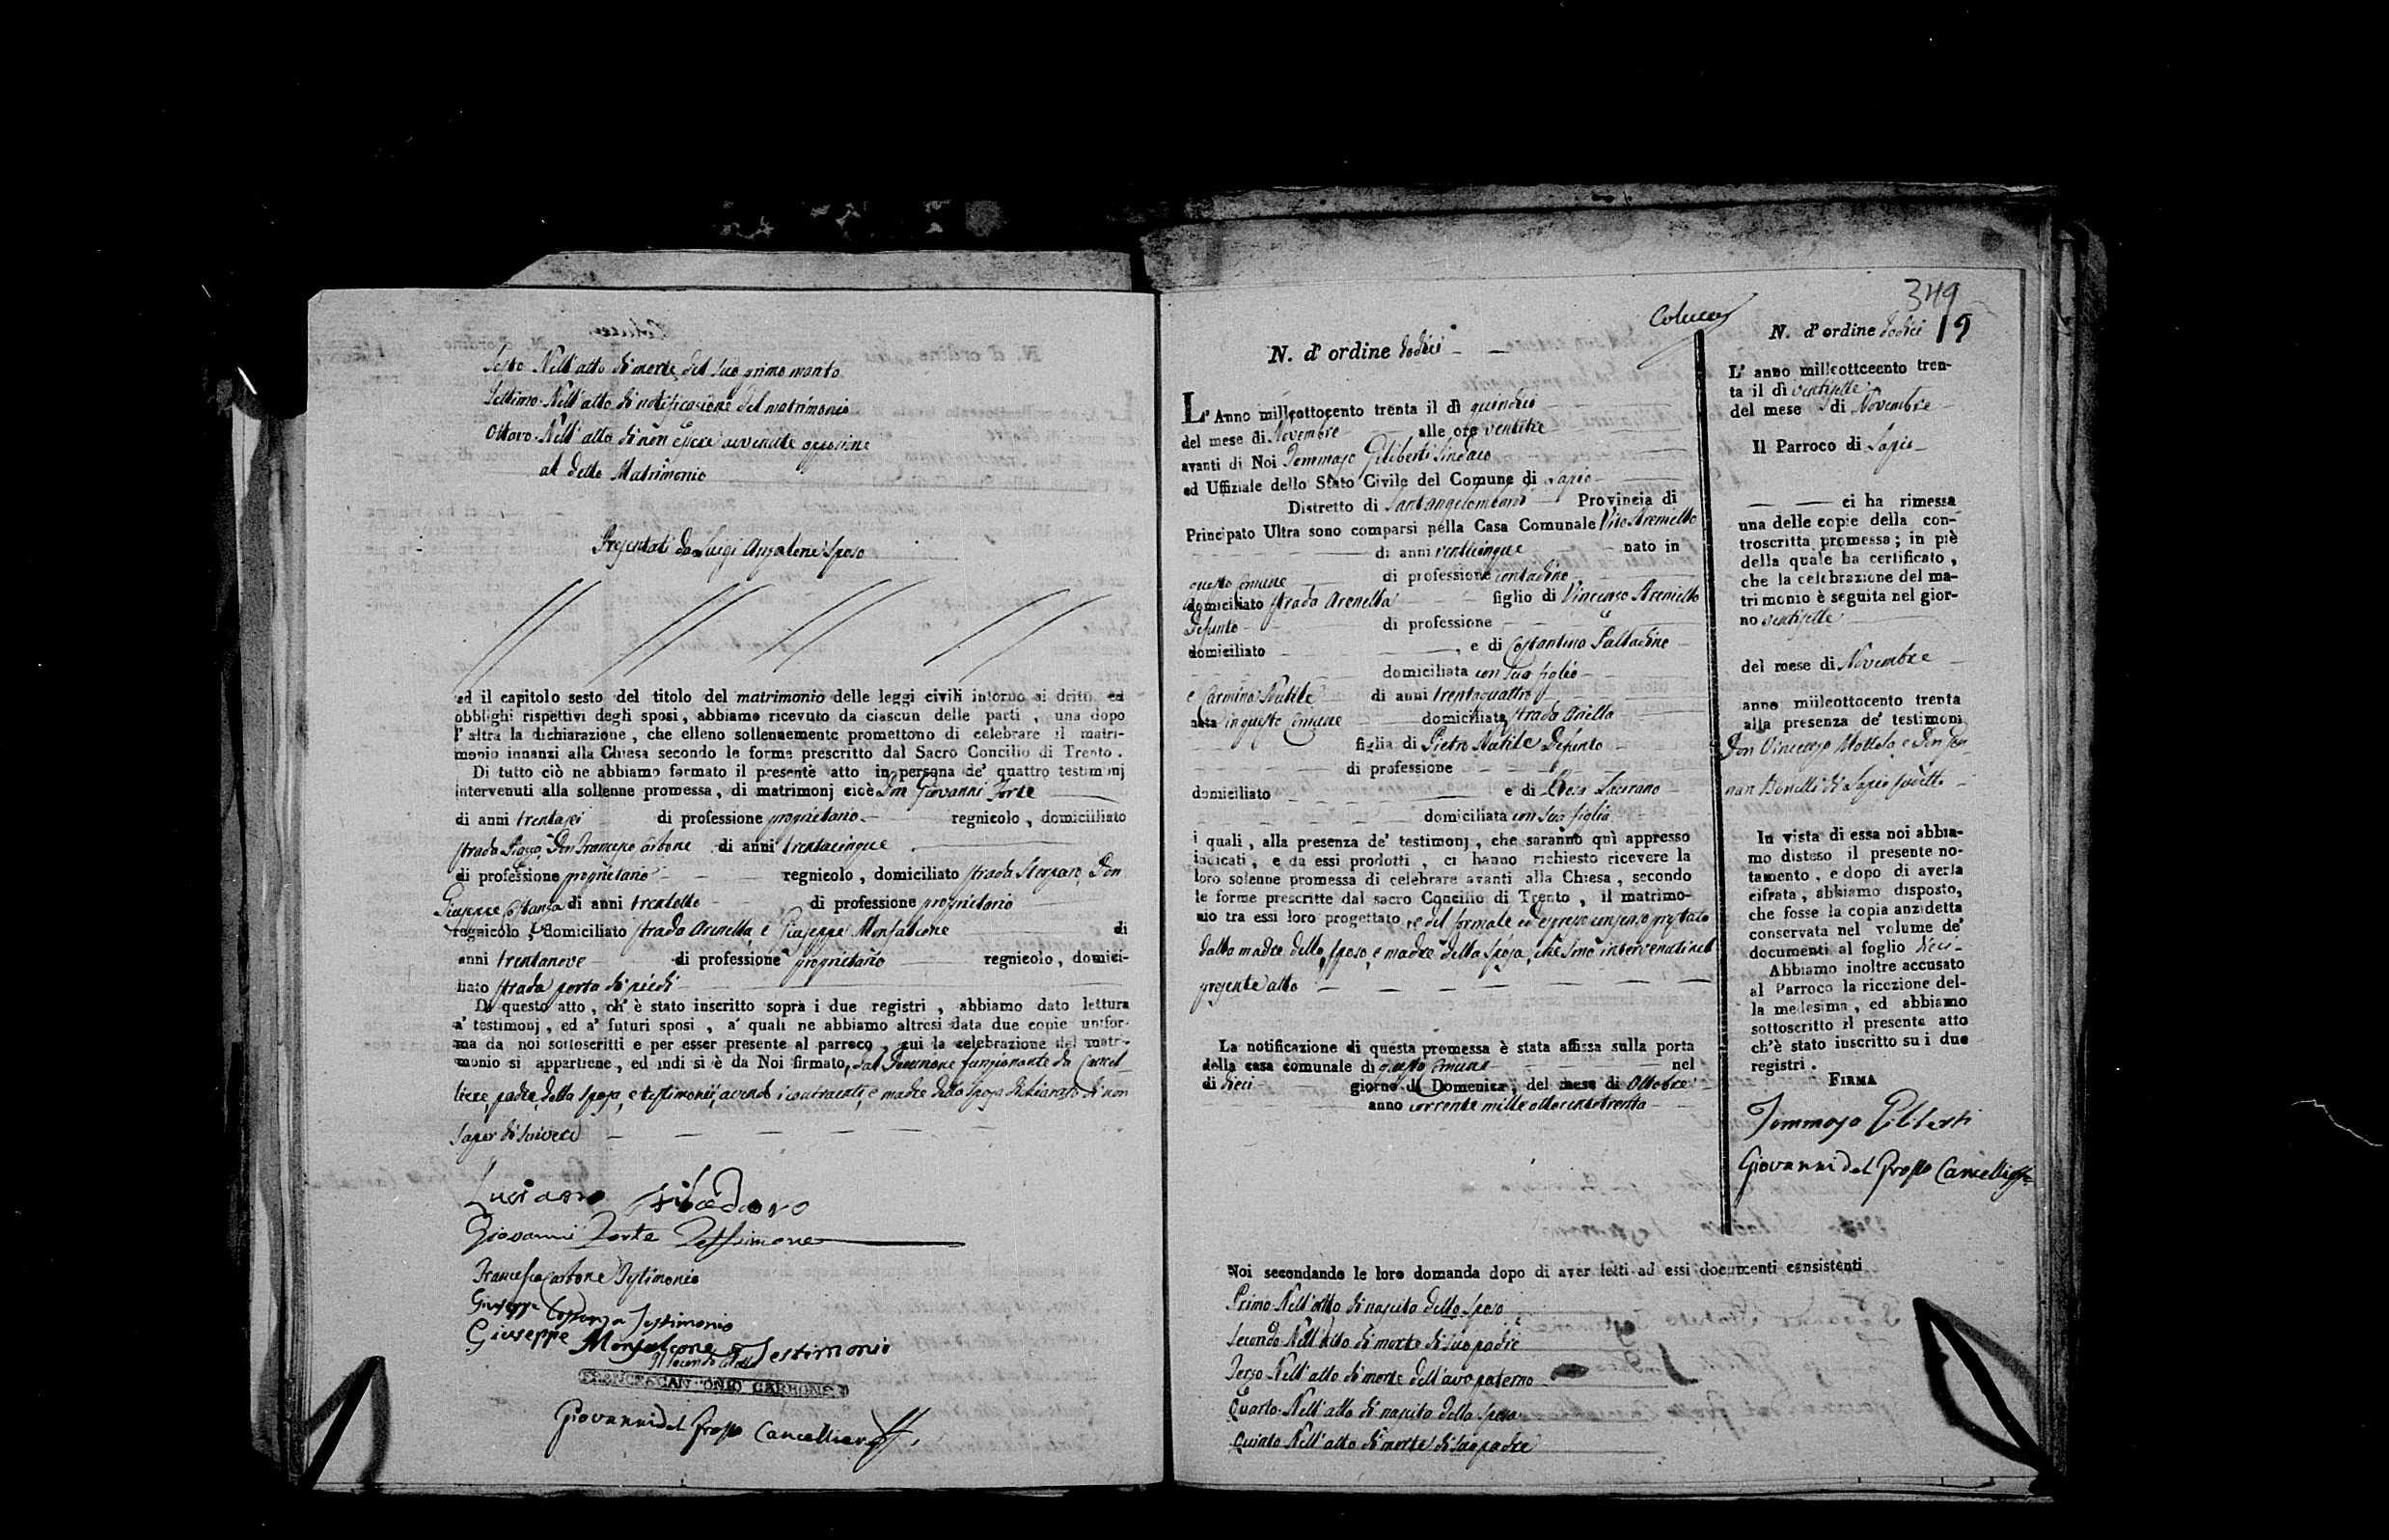 Sesto Nell'atto di morte del suo primo marito
Settimo Nell'atto di notificazione del matrimonio
Ottavo Nell'atto di non essere avvenute opposizine
al detto Matrimonio
Presentati da Luigi Anzalone sposo
ed il capitolo sesto del titolo del matrimonio delle leggi civili intorno ai dritti ed
obblighi rispettivi degli sposi, abbiamo ricevuto da ciascun delle parti, una dopo
l'altra la dichiarazione, che elleno sollennemente promettono di celebrare il matri-
monio innanzi alla Chiesa secondo le forme prescritto dal Sacro Concilio di Trento.
Di tutto ciò ne abbiamo formato il presente atto in persona de' quattro testimonj
intervenuti alla sollenne promessa, di matrimonj cioè Don Giovanni Forte
di anni trentasei di professione proprietario regnicolo, domicilliato
strada Piazza, Don Francesco Carbone di anni trentacinque
di professione proprietario regnicolo, domiciliato strada Don
Giuseppe Costanza di anni trentotto di professione proprietario
regnicolo, domiciliato strada Arenella e Giuseppe Monfalcone di
anni trentanove di professione proprietario regnicolo, domici-
liato strada porta di piedi
Di questo atto, ch'è stato inscritto sopra i due registri, abbiamo dato lettura
a' testimonj, ed a' futuri sposi, a' quali ne abbiamo altresì data due copie unifor-
ma da noi sottoscritti e per esser presente al parroco, cui la celebrazione del matri-
monio si appartiene, ed indi si è da Noi firmato, dal Decurione funzionante da Cancel-
liere, padre della sposa, e testimonii, avendo i contraenti, e madre della sposa dichiarato di non
saper di scrivere
Luciano
Giovanni Forte Testimone
Francesco Carbone Testimonio
Giuseppe Costanza Testimonio
Giuseppe Monfalcone Testimonio
Il secondo eletto
FRANCESCANTONIO CARBONE
Giovanni del Grosso Cancelliere
349
Colucci
N. d' ordine dodici
L' Anno millcottocento trenta il dì quindici
del mese di Novembre alle ore ventitre
avanti di Noi Tommaso Giliberti Sindaco
ed Uffiziale dello Stato Civile del Comune di Lapio
Distretto di Santangelombardi Provincia di
Principato Ultra sono comparsi nella Casa Comunale Vito Areniello
di anni venticinque nato in
questo Comune di professione contadino
domiciliato strada Arenella figlio di Vincenzo Areniello
Defunto di professione
domiciliato , e di Costantina
domiciliata con suo figlio
e Carmina Natile di anni trentaquattro
nata in questo Comune domiciliata strada
figlia di Pietro Natile Defunto
di professione
domiciliato e di Rosa
domiciliata con sua figlia
i quali, alla presenza de' testimonj, che saranno quì appresso
indicati, e da essi prodotti, ci hanno richiesto ricevere la
loro solenne promessa di celebrare avanti alla Chiesa, secondo
le forme prescritte dal sacro Concilio di Trento, il matrimo-
nio tra essi loro progettato, e del formale ed espresso consenso prestato
dalla madre dello sposo, e madre della sposa, che sono intervenuti nel
presente atto
La notificazione di questa promessa è stata affissa sulla porta
della casa comunale di questo Comune nel
dì dieci giorno di Domenica, del mese di Ottobre
anno corrente mille ottocentotrenta
Noi secondando le loro domanda dopo di aver letti ad essi documenti consistenti
Primo Nell'atto di nascita dello sposo
Secondo Nell'atto di morte di suo padre
Terzo Nell'atto di morte dell'avo paterno
Quarto Nell'atto di nascita della sposa
Quinto Nell'atto di morte di suo padre
N. d' ordine dodici 19
L' anno millcottocento tren-
ta il dì ventisette
del mese di Novembre
Il Parroco di Lapio
ci ha rimessa
una delle copie della con-
troscritta promessa; in piè
della quale ha certificato,
che la celebrazione del ma-
trimonio è seguita nel gior-
no ventisette
del mese di Novembre
anno millcottocento trenta
alla presenza de' testimoni
Don Vincenzo Mottola e Don
di Lapio
In vista di essa noi abbia-
mo disteso il presente no-
tamento, e dopo di averla
cifrata, abbiamo disposto,
che fosse la copia anzidetta
conservata nel volume de'
documenti al foglio dieci
Abbiamo inoltre accusato
al Parroco la ricezione del-
la medesima, ed abbiamo
sottoscritto il presente atto
ch'è stato inscritto su i due
registri.
FIRMA
Tommaso Giliberti
Giovanni del Grosso Cancelliere